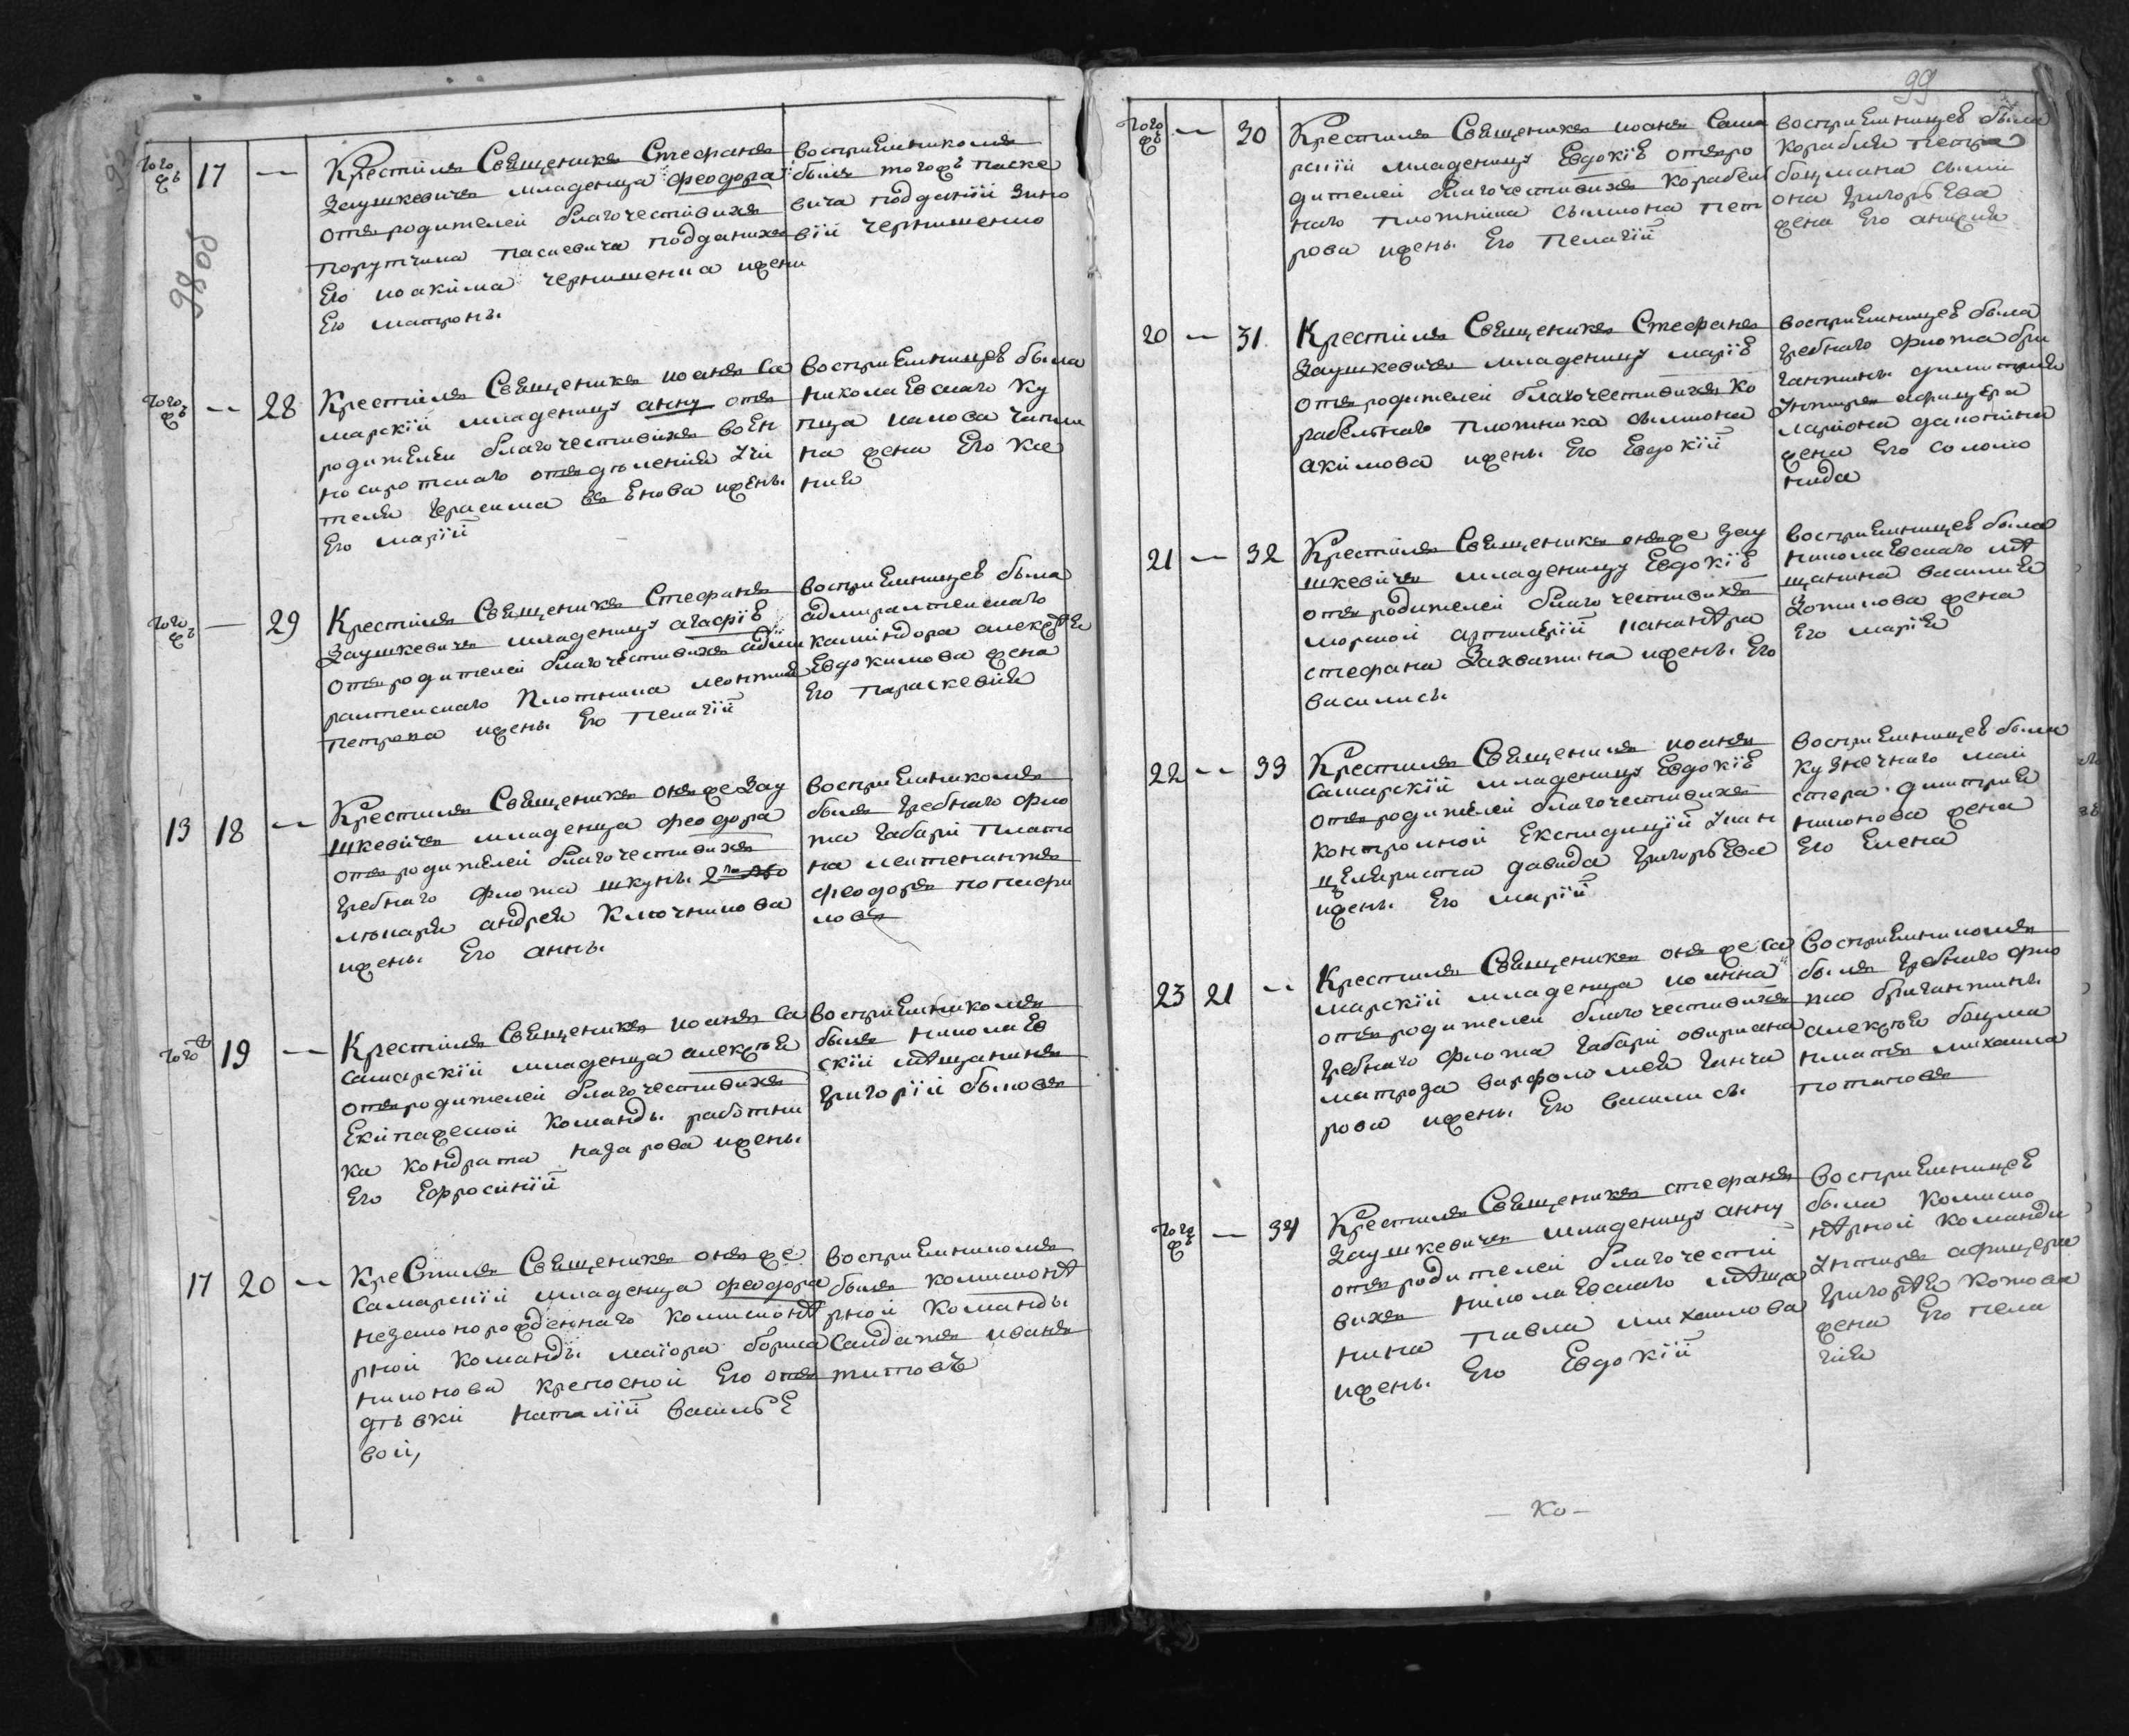 98 об
тогожъ 17 —
Крестилъ Священикъ Стефанъ
Заушкевичъ младенца феодора
отъ родителей благочестивихъ
порутчика Паскевича подданихъ
Его иоакима чернишенка ижени
Его матроны
восприемникомъ
былъ тогожъ паске
вича подданій Зино
вій чернишенко
тогожъ — 28
Крестилъ Священикъ иоанъ Са
марскій младеницу анну отъ
родителей благочестивихъ воен
но сиротскаго отъдѣленія учи
теля Герасима ижены
Его маріи
восприемницею была
николаевскаго ку
пца
на жена Его Ксе
нія
тогожъ — 29
Крестилъ Священикъ Стефанъ
Заушкевичъ младеницу агафію
отъ родителей благочестивихъ адми
ралтейскаго плотника леонтия
петрова ижены Его пелагіи
восприемницею была
адмиралтейскаго
камандора алексѣя
Евдокимова жена
Его параскевія
13 18 —
Крестилъ Священикъ онъже Зау
шкевичъ младенца феодора
отъ родителей благочестивихъ
гребнаго флота шкуны 2
андрея ключникова
ижены Его анны
восприемникомъ
былъ гребнаго фло
та габари плато
на леитенантъ
феодоръ
тогожъ 19 —
Крестилъ Священикъ иоанъ Са
самарскій младенца алексѣя
отъ родителей благочестивихъ
Екипажеской команды работни
ка кондрата назарова ижены
Его Ефросиніи
восприемникомъ
былъ николаев
скій мѣщанинъ
григорій быковъ
17 20 —
Крестилъ Священикъ онъ же
Самарскій младенца феодора
незаконорожденнаго комисионѣ
рной команды маіора бориса
никонова крепосной Его отъ
дѣвки наталіи василье
вой,
восприемникомъ
былъ комисионѣ
рной команды
салдатъ иванъ
титовъ
99
тогожъ — 30
Крестилъ Священикъ иоанъ Сама
рскій младеницу Евдокію отъ ро
дителей благочестивихъ корабель
наго плотника сымиона пет
рова ижены Его пелагіи
восприемницею была
корабля петра
боцмана сыми
она григорьева
жена Его
20 — 31
Крестилъ Священикъ Стефанъ
Заушкевичъ младеницу марію
отъ родителей благочестивихъ ко
рабельнаго плотника сымиона
акимова ижены Его Евдокіи
восприемницею была
гребнаго флота бри
гантины димитрия
унтиръ афицера
лариона
жена Его соломо
нида
21 — 32
Крестилъ Священикъ онъже Зау
шкевичъ младеницу Евдокію
отъ родителей благочестивихъ
морской артилеріи канонѣра
стефана Захваткина ижены Его
василисы
восприемницею была
николаевскаго мѣ
щанина василия
Зотикова жена
Его марія
22 — 33
Крестилъ Священикъ иоанъ
Самарскій младеницу Евдокію
отъ родителей благочестивихъ
контролной Експедиціи укан
целяриста давида григорьева
ижены Его маріи
восприемницею была
кузнечнаго маи
стера димитрия
никонова жена
Его Елена
23 21 —
Крестилъ Священикъ онъ же Са
марскій младенца иоанна
отъ родителей благочестивихъ
гребнаго флота габари
матроза варфоломея ганча
рова ижены Его василисы
восприемникомъ
былъ гребнаго фло
та бригантины
алексѣя боцма
нматъ михаила
потаповъ
тогожъ — 34
Крестилъ Священикъ стефанъ
Заушкевичъ младеницу анну
отъ родителей благочести
вихъ николаевскаго мѣща
нина павла михаилова
ижены Его Евдокіи
восприемницею
была комисио
нѣрной команды
унтиръ афицера
григорѣя котова
жена Его пела
гия
— Ко —